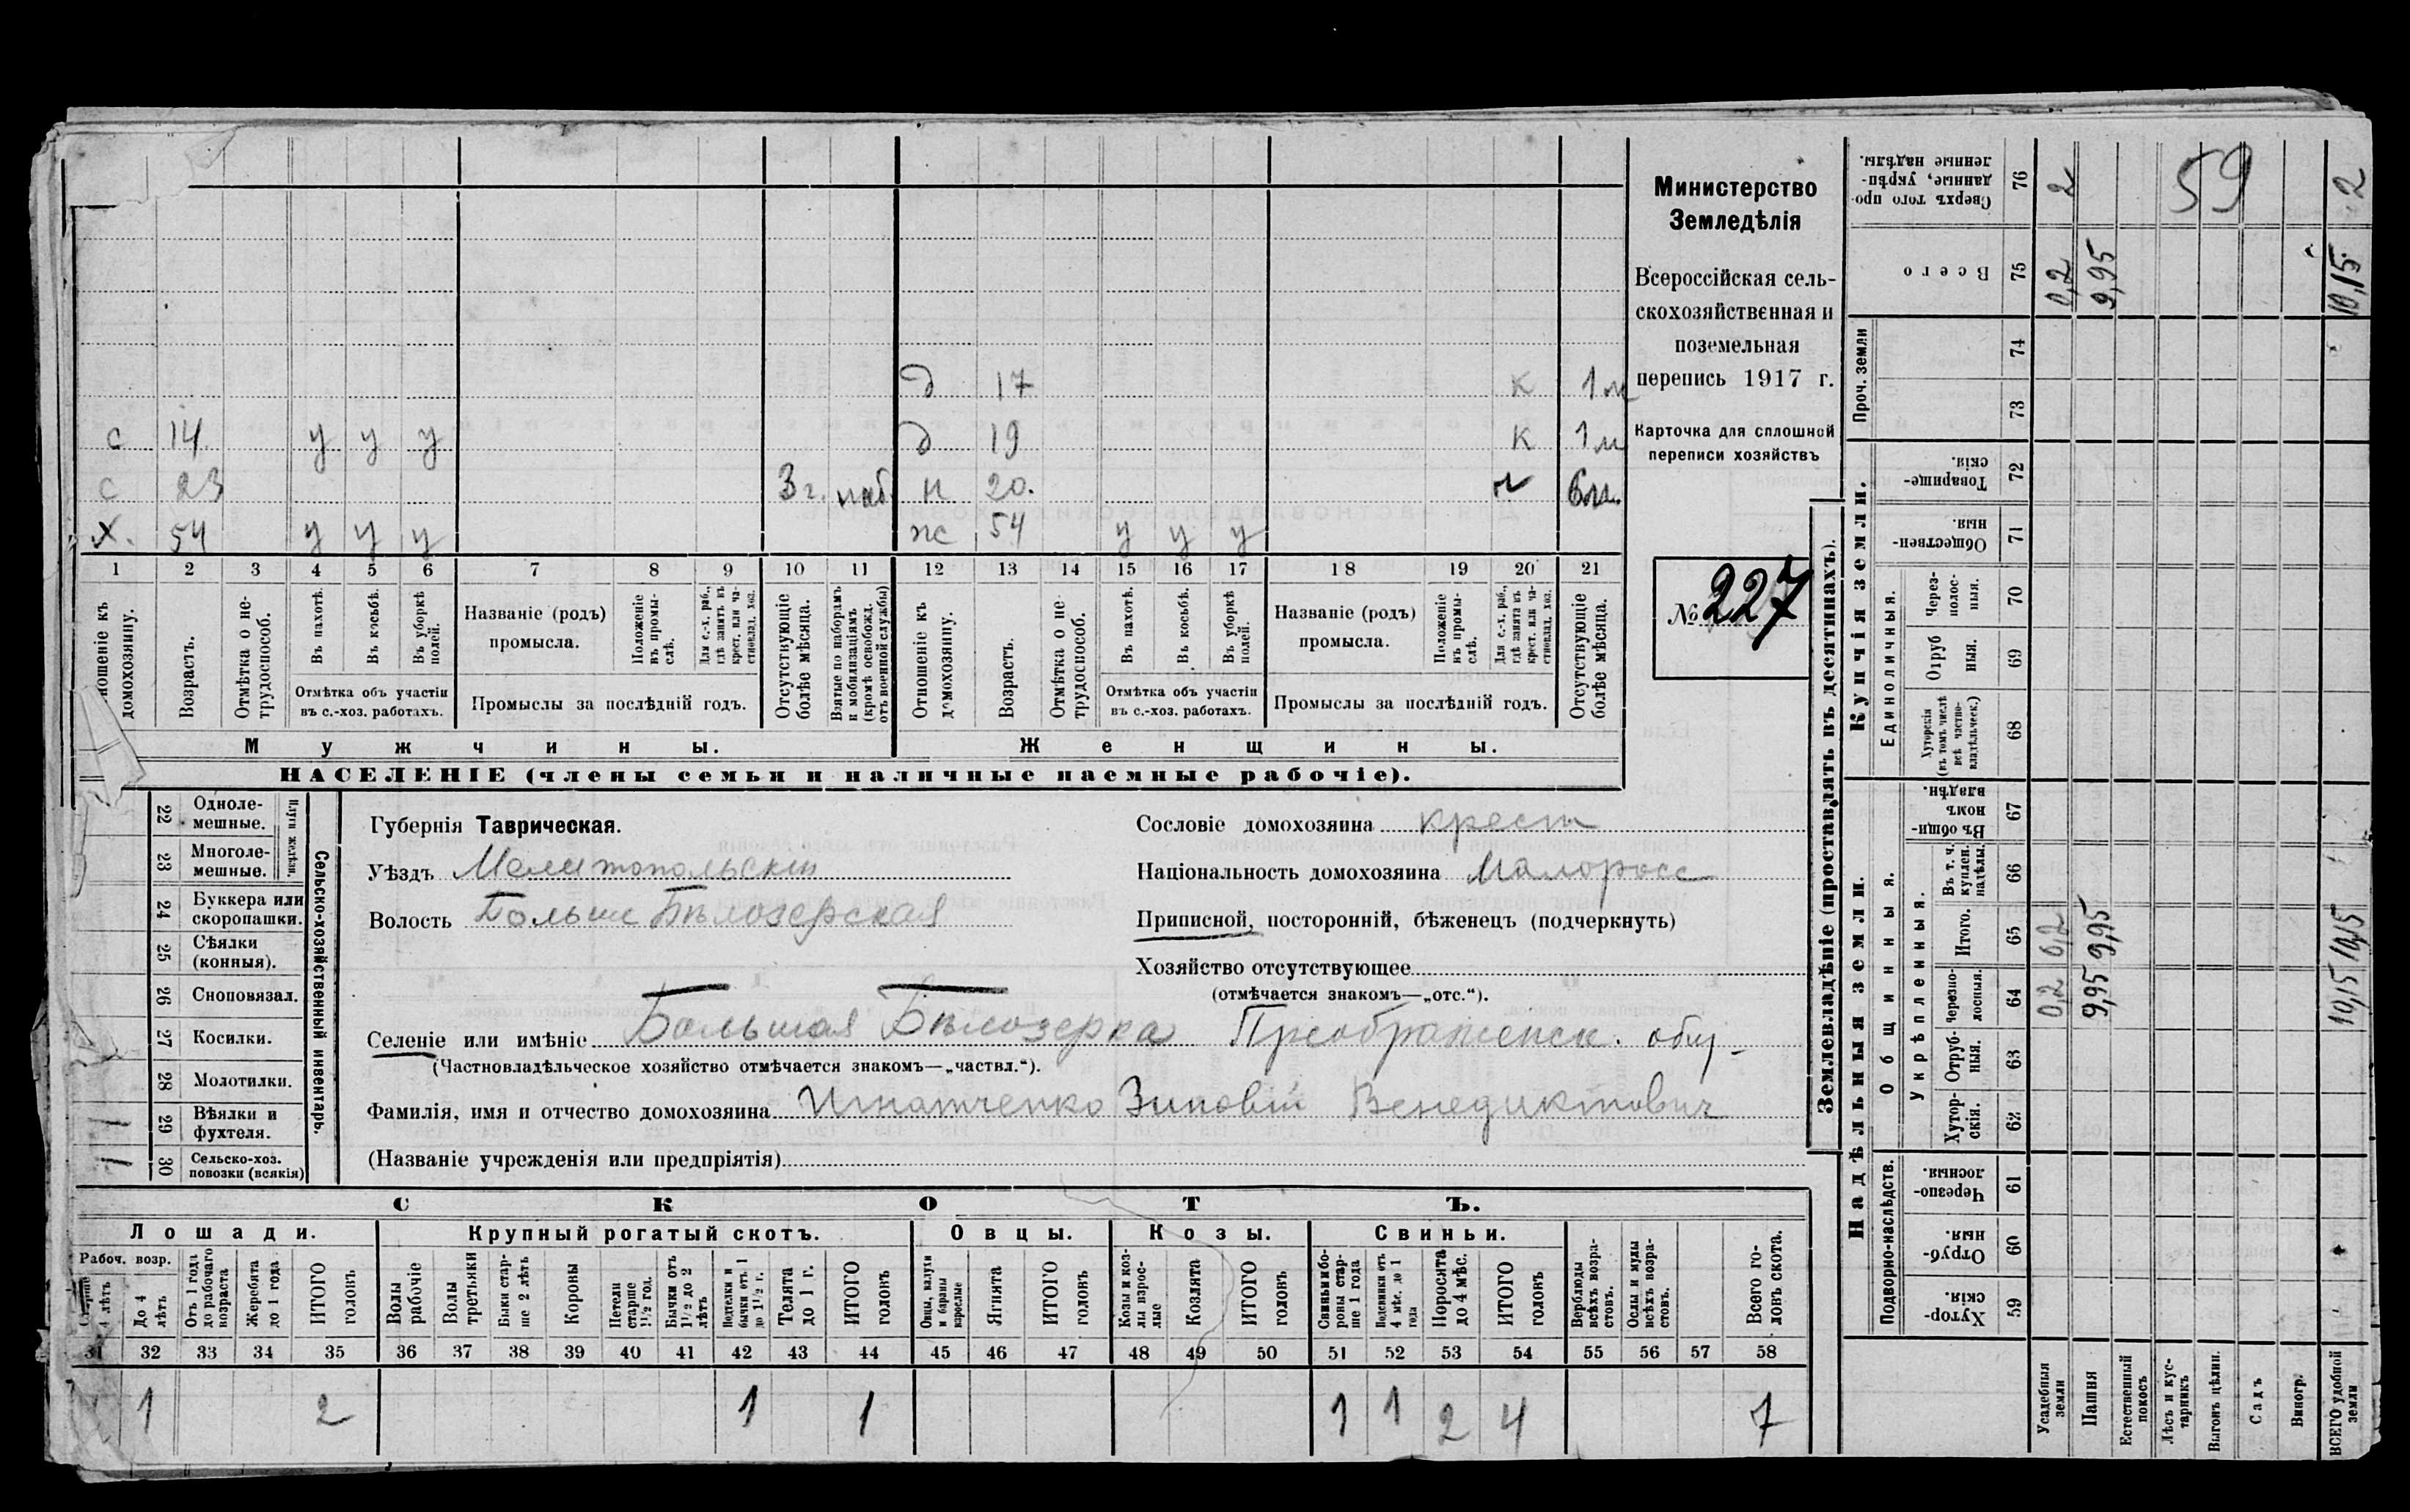 Министерство
Земледѣлія
Всероссійская сель-
скохозяйственная и
поземельная
перепись 1917 г.
Карточка для сплошной
переписи хозяйствъ
№ 227
д 17 к 1 м
с 14 у у у д 19 к 1 м
с 23 3 г. наб. н 20. 6 м.
х. 54 у у у ж 54 у у у
1 2 3 4 5 6 7 8 9 10 11 12 13 14 15 16 17 18 19 20 21
Отношеніе къ домохозяину.
Возрастъ.
Отмѣтка о не-трудоспособ.
Въ пахотѣ.
Въ косьбѣ.
Въ уборкѣ полей.
Отмѣтка объ участіи
въ с.-хоз. работахъ.
Названіе (родъ)
промысла.
Положеніе въ промы-слѣ.
Для с.-х. раб., гдѣ занятъ въ крест. или ча-стновлад. хоз.
Промыслы за послѣдній годъ.
Отсутствующіе болѣе мѣсяца.
Взятые по наборамъ и мобилизаціямъ (кромѣ освобожд. отъ военной службы)
Отношеніе къ домохозяину.
Возрастъ.
Отмѣтка о не трудоспособ.
Въ пахотѣ.
Въ косьбѣ.
Въ уборкѣ полей.
Отмѣтка объ участіи
въ с.-хоз. работахъ.
Названіе (родъ)
промысла.
Положеніе въ промы-слѣ.
Для с.-х. раб., гдѣ занята въ крест. или ча-стновлад. хоз.
Промыслы за послѣдній годъ.
Отсутствующіе болѣе мѣсяца.
Мужчины. Женщины.
НАСЕЛЕНІЕ (члены семьи и наличные наемные рабочіе).
Сельско-хозяйственный инвентарь.
Плуги желѣзн.
22 Одноле-мешные.
23 Многоле-мешные.
24 Буккера или скоропашки.
25 Сѣялки (конныя).
26 Сноповязал.
27 Косилки.
28 Молотилки.
29 Вѣялки и фухтеля. 1
30 Сельско-хоз. повозки (всякія) 1
Губернія Таврическая.
Уѣздъ Мелитопольскій
Волость Больше Бѣлозерская
Сословіе домохозяина крест
Національность домохозяина Малоросс
Приписной, посторонній, бѣженецъ (подчеркнуть)
Хозяйство отсутствующее
(отмѣчается знакомъ—„отс.“).
Селеніе или имѣніе Большая Бѣлозерка Преображенск. общ-
(Частновладѣльческое хозяйство отмѣчается знакомъ—„частвл.“).
Фамилія, имя и отчество домохозяина Игнатченко Зиновій Венедиктович
(Названіе учрежденія или предпріятія)
СКОТЪ.
Лошади. Крупный рогатый скотъ. Овцы. Козы. Свиньи.
Рабоч. возр.
4 лѣтъ
До 4 лѣтъ
Отъ 1 года до рабочаго возраста
Жеребята до 1 года
ИТОГО головъ
Волы рабочіе
Волы третьяки
Быки стар-ше 2 лѣтъ
Коровы
Нетели старше 1½ год.
Бычки отъ 1½ до 2 лѣтъ
Подтелки и бычки отъ 1 до 1½ г.
Телята до 1 г.
ИТОГО головъ
Овцы, валухи и бараны взрослые
Ягнята
ИТОГО головъ
Козы и коз-лы взрос-лые
Козлята
ИТОГО головъ
Свиньи и бо-ровы стар-ше 1 года
Подсвинки отъ 4 мѣс. до 1 года
Поросята до 4 мѣс.
ИТОГО головъ
Верблюды всѣхъ возра-стовъ.
Ослы и мулы всѣхъ возра-стовъ.
Всего го-ловъ скота.
31 32 33 34 35 36 37 38 39 40 41 42 43 44 45 46 47 48 49 50 51 52 53 54 55 56 57 58
1 2 1 1 1 1 2 4 7
Землевладѣніе (проставлять въ десятинахъ).
Надѣльныя земли. Купчія земли. Проч. земли
Подворно-наслѣдств.
Общинныя.
Укрѣпленныя.
Единоличныя.
59 Хутор-скія.
60 Отруб-ныя.
61 Черезпо-лосныя.
62 Хутор-скія.
63 Отруб-ныя.
64 Черезпо-лосныя.
65 Итого.
66 Въ т. ч. куплен. надѣлы.
67 Въ общин-номъ владѣн.
68 Хуторскія (въ томъ числѣ всѣ частно-владѣльческ.)
69 Отруб ныя.
70 Через-полос-ныя.
71 Обществен-ныя.
72 Товарище-скія.
73
74
75 Всего
76 Сверхъ того про-данные, укрѣп-ленные надѣлы.
Усадебныя земли 0,2 0,2 0,2 2
Пашня 9,95 9,95 9,95
Естественный покосъ
Лѣсъ и кус-тарникъ
Выгонъ цѣлин.
Садъ
Виногр.
ВСЕГО удобной земли 10,15 10,15 10,15 2
59